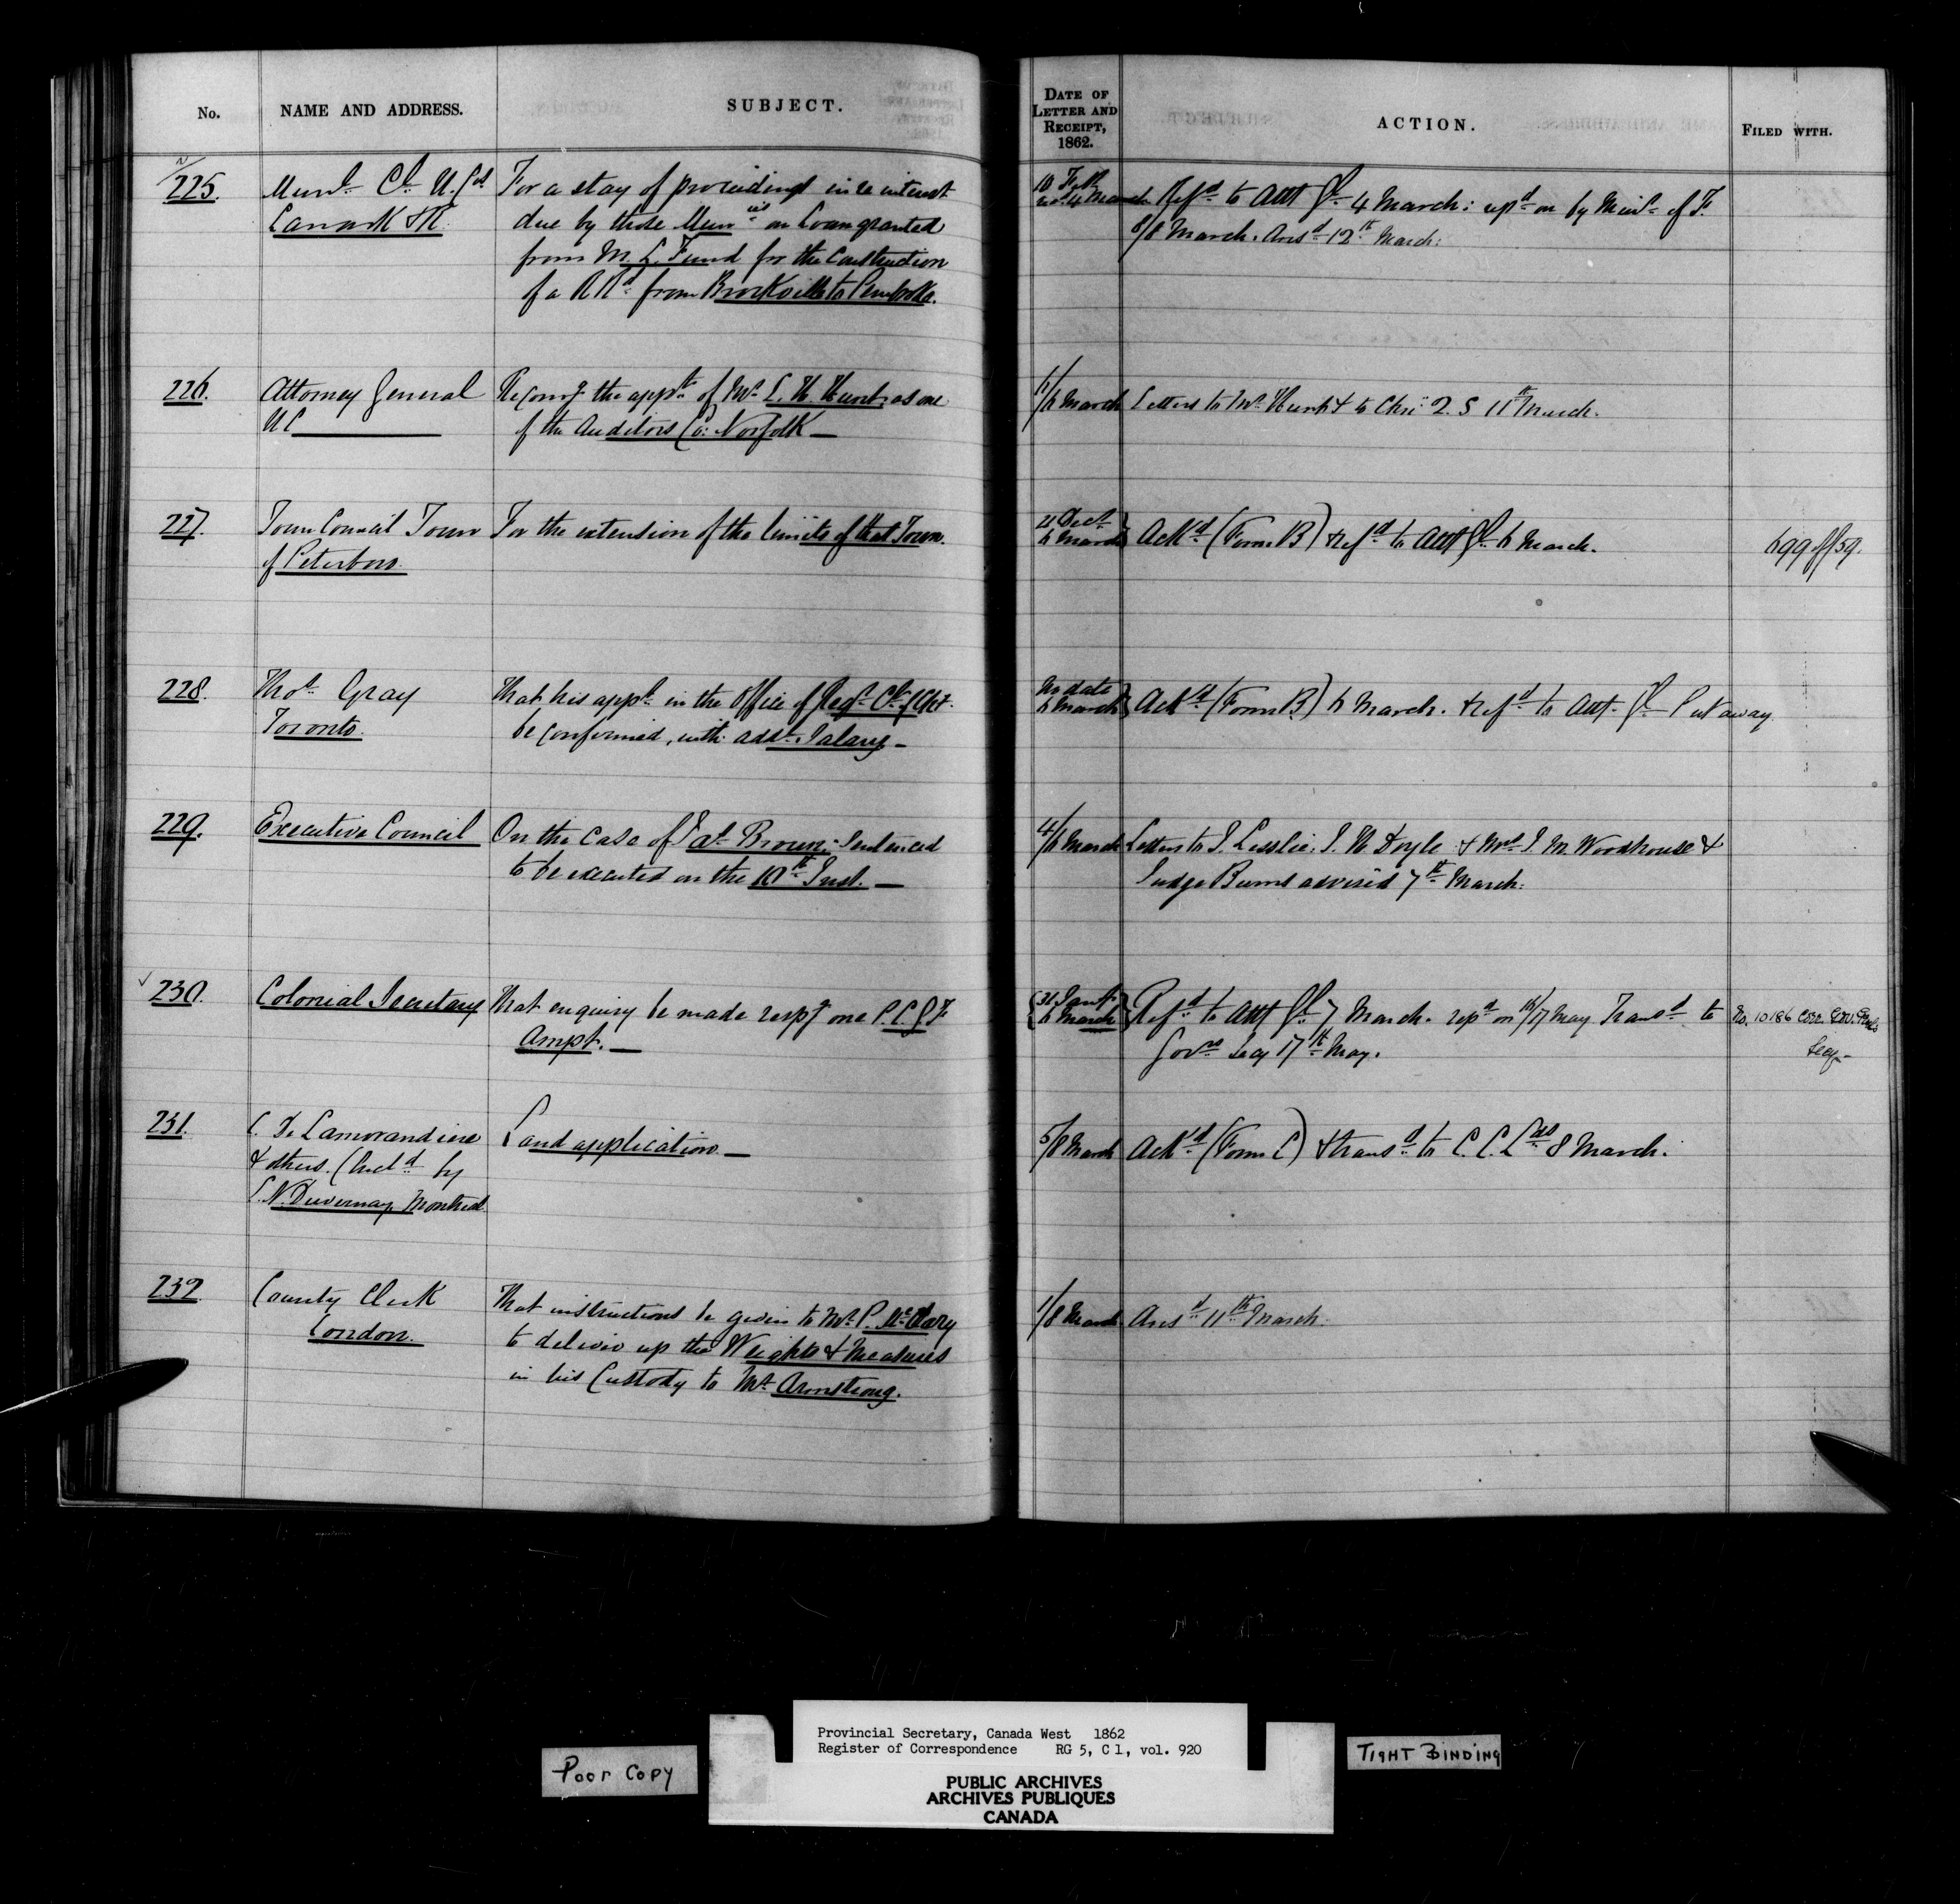 No. NAME AND ADDRESS. SUBJECT. DATE OF LETTER AND RECEIPT, 1862. ACTION. FILED WITH.
225. Munl Ck U. Cos For a stay of proceedings in re interest
Lanark & R. due by those Muns on Loan granted
from M. L. Fund for the Construction
of a R Rd from Brockville to Pembroke.
10 Feb 4 March Refd to Att Gl 4 March: repd on by Minr of F.
8 March. Ansd 12th March.
226. Attorney General Recomg the appt of Mr L. H. Hunt as one
UC of the Auditors Co: Norfolk —
1/6 March Letters to Mr Hunt & to Chn 2. S 11th March.
227. Town Council Town For the extension of the limits of that Town.
of Peterboro
21 Decr 6 March Ackd (Form B) & refd to Att Gl 6 March. 699 of 59.
228. Thos Gray That his appt in the Office of Regr Ct of Ch.
Toronto. be confirmed, with addl Salary —
No date 6 March Ackd (Form B) 6 March. & refd to Att. Gl Put away
229. Executive Council On the case of Pat Brown. Sentenced
to be executed on the 10th Inst. —
4/6 March Letters to J. Lesslie, J. H. Doyle & Mrs J. M. Woodhouse &
Judge Burns advised 7th March.
230. Colonial Secretary That enquiry be made respg one P. C. G. F.
Ampt. —
31 Jany 6 March Refd to Att Gl 7 March. repd on 16/17 May Transd to No. 10186 Corr. Gov. Genls
Govrs Secy 17th May. Secy —
231. C. De Lamorandiere Land application —
& others. (Encld by
L. N. Duvernay, Montreal
5/8 March Ackd (Form C) & transd to C. C. Lds 8 March.
232 County Clerk That instructions be given to Mr P. McClary
London. to deliver up the Weights & Measures
in his Custody to Mr Armstrong.
1/8 March Ansd 11th March.
Poor Copy
Provincial Secretary, Canada West 1862
Register of Correspondence RG 5, C 1, vol. 920
PUBLIC ARCHIVES
ARCHIVES PUBLIQUES
CANADA
TIGHT BINDING